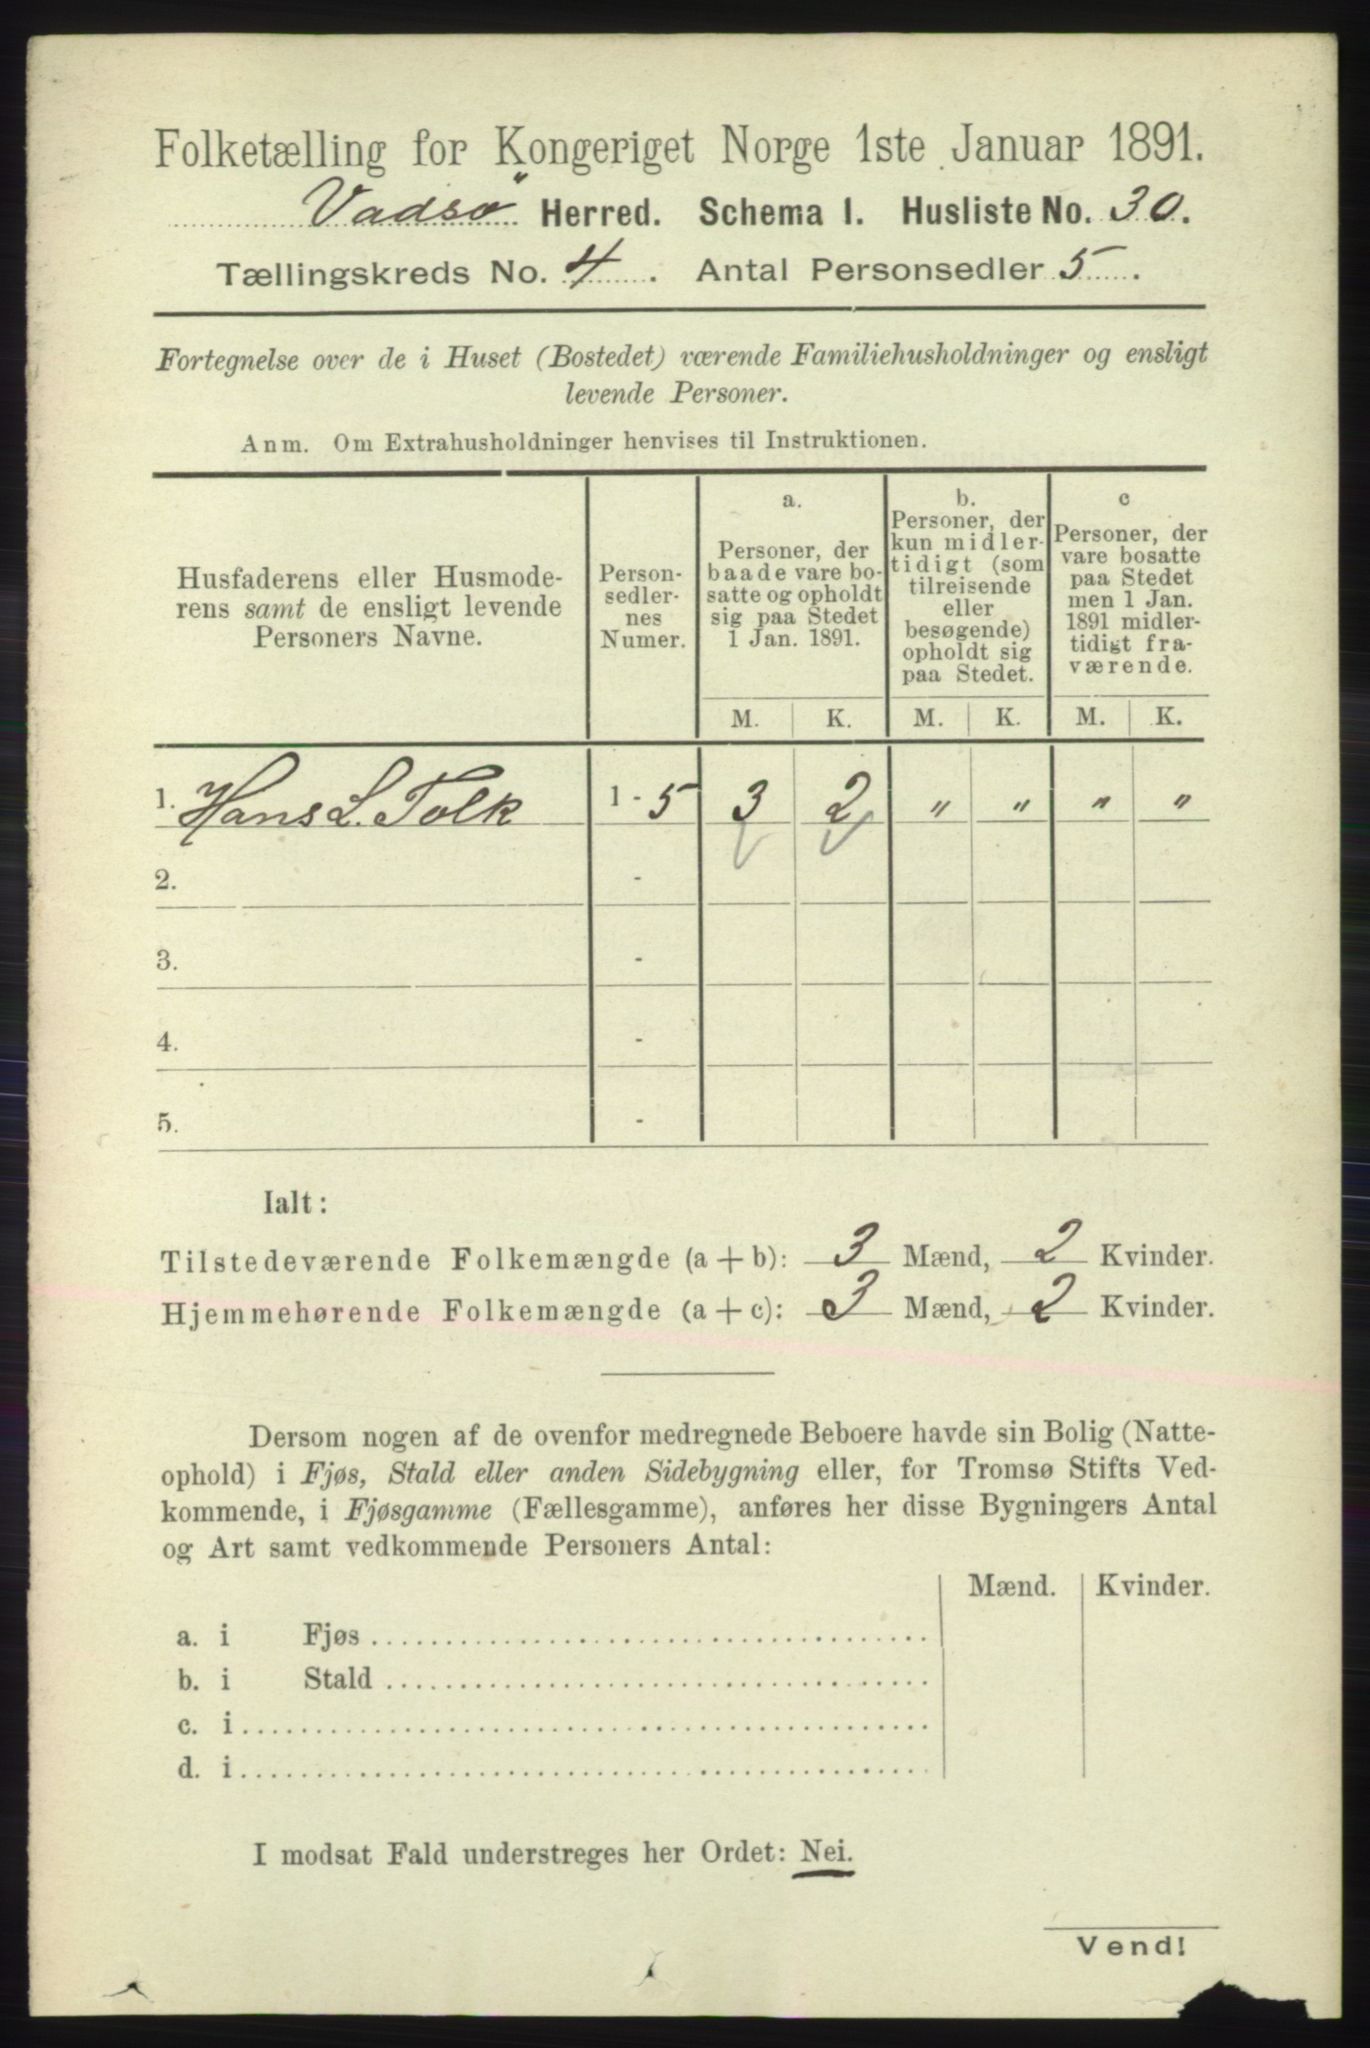 Folketælling for Kongeriget Norge 1ste Januar 1891.
Vadsö Herred. Schema I. Husliste No. 30.
Tællingskreds No. 4. Antal Personsedler 5.
Fortegnelse over de i Huset (Bostedet) værende Familiehusholdninger og ensligt
levende Personer.
Anm. Om Extrahusholdninger henvises til Instruktionen.
Husfaderens eller Husmode-
rens samt de ensligt levende
Personers Navne.
Person-
sedler-
nes
Numer.
a.
Personer, der
baade vare bo-
satte og opholdt
sig paa Stedet
1 Jan. 1891.
b.
Personer, der
kun midler-
tidigt (som
tilreisende
eller
besøgende)
opholdt sig
paa Stedet.
c
Personer, der
vare bosatte
paa Stedet
men 1 Jan.
1891 midler-
tidigt fra-
værende.
M. K. M. K. M. K.
1. Hans L. Tolk 1 - 5 3 2 " " " "
2. -
3. -
4. -
5. -
Ialt:
Tilstedeværende Folkemængde (a + b): 3 Mænd, 2 Kvinder.
Hjemmehørende Folkemængde (a + c): 3 Mænd, 2 Kvinder.
Dersom nogen af de ovenfor medregnede Beboere havde sin Bolig (Natte-
ophold) i Fjøs, Stald eller anden Sidebygning eller, for Tromsø Stifts Ved-
kommende, i Fjøsgamme (Fællesgamme), anføres her disse Bygningers Antal
og Art samt vedkommende Personers Antal:
Mænd. Kvinder.
a. i Fjøs
b. i Stald
c. i
d. i
I modsat Fald understreges her Ordet: Nei.
Vend!